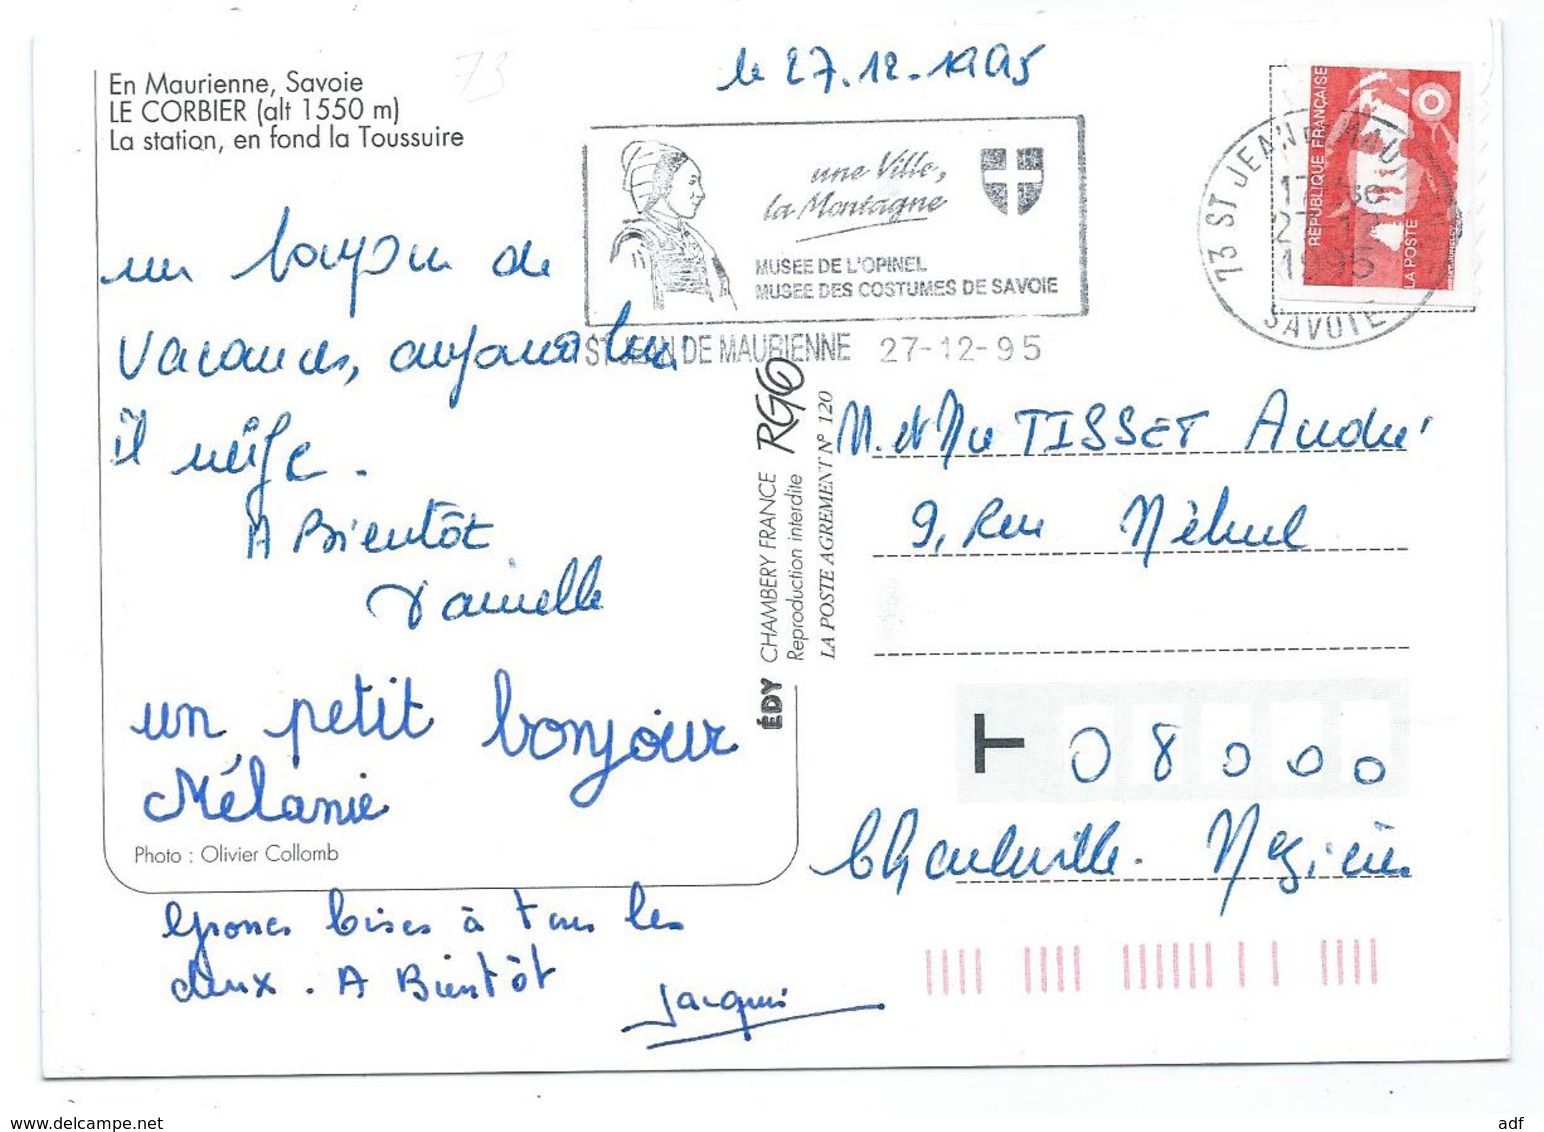 En Maurienne, Savoie
LE CORBIER (alt 1550 m)
La station, en fond la Toussuire
73
le 27.12.1995
une Ville,
la Montagne
MUSEE DE L'OPINEL
MUSEE DES COSTUMES DE SAVOIE
ST JEAN DE MAURIENNE 27-12-95
73 ST JEAN
27 12
1995
SAVOIE
REPUBLIQUE FRANÇAISE
LA POSTE
un bonjour de
vacances, aujourd'hui
il neige.
A Bientôt
Danielle
un petit bonjour
Mélanie
Photo : Olivier Collomb
Grosses bises à tous les
deux. A Bientôt
Jacques
ÉDY CHAMBERY FRANCE RGO
Reproduction interdite
LA POSTE AGREMENT N° 120
M. et Me TISSET André
9, Rue Méhul
T 08000
Charleville. Mézières
adf